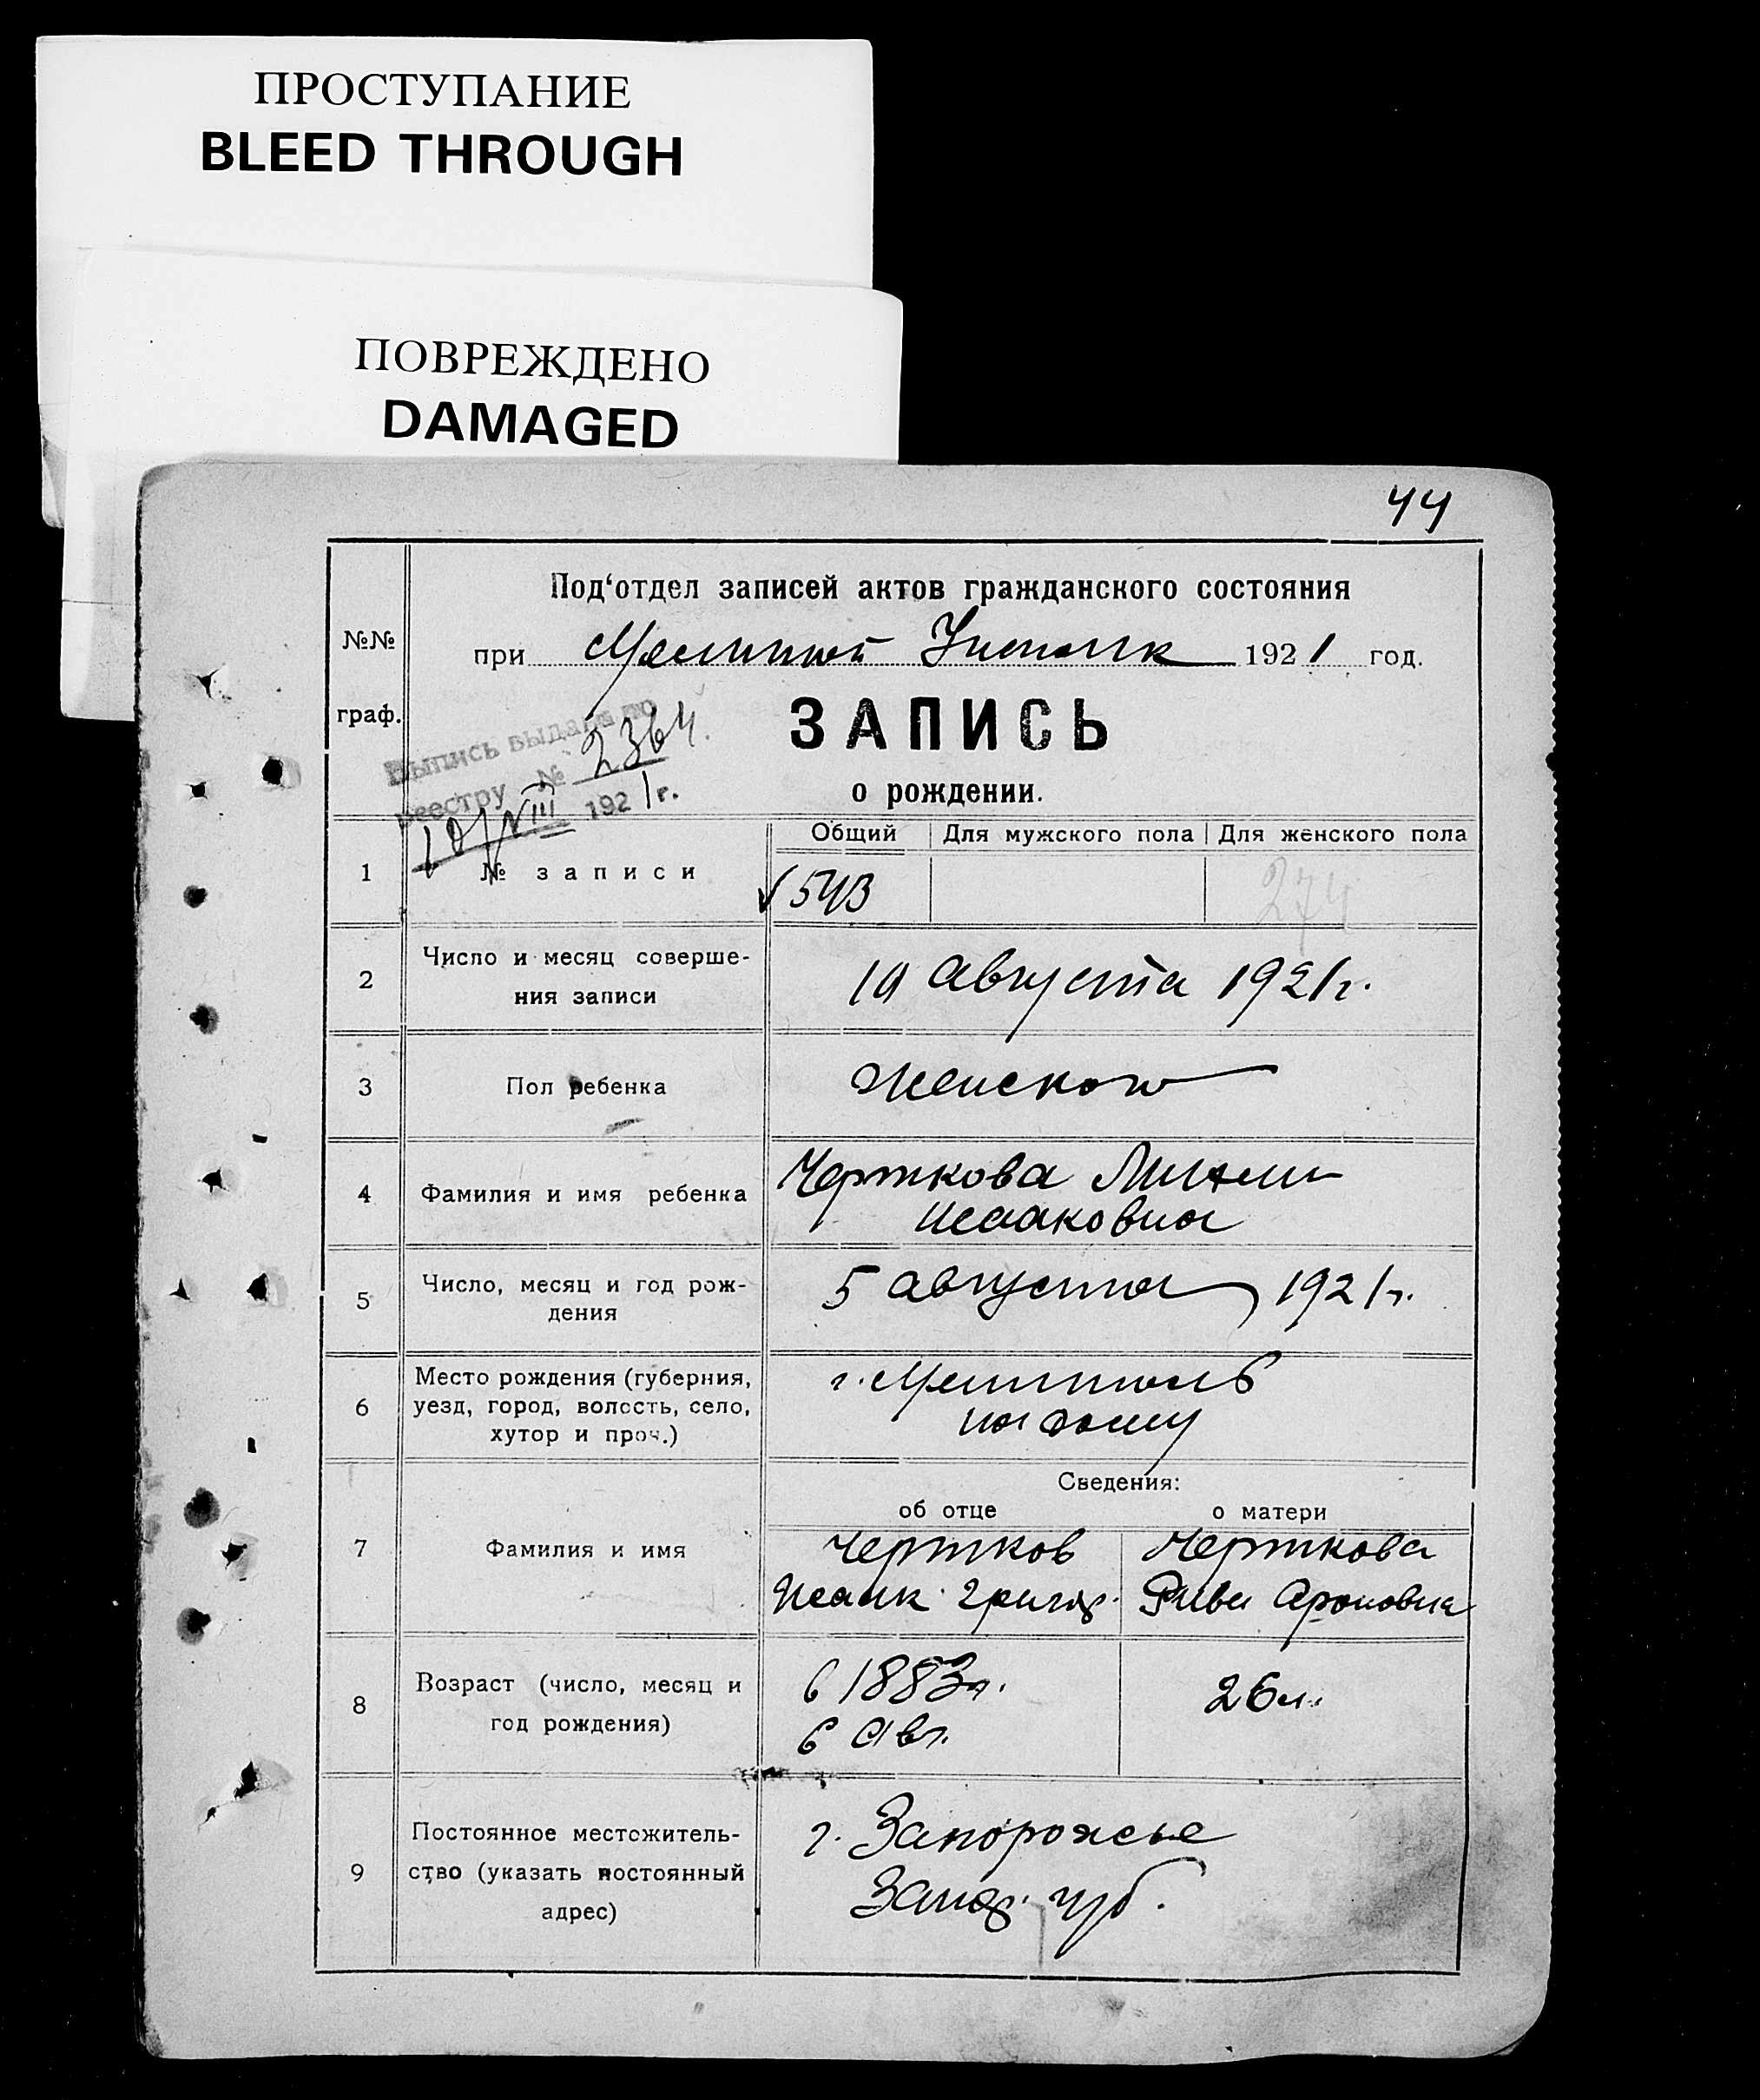 ПРОСТУПАНИЕ
BLEED THROUGH
ПОВРЕЖДЕНО
DAMAGED
44
Под'отдел записей актов гражданского состояния
№№
граф.
при 1921 год.
Выпись выдана по
реестру № 2364.
VIII 1921 г.
ЗАПИСЬ
о рождении.
Общий Для мужского пола Для женского пола
1 № записи 543 274
2 Число и месяц соверше-
ния записи
августа 1921 г.
3 Пол ребенка женского
4 Фамилия и имя ребенка
Черткова
Исааковна
5 Число, месяц и год рож-
дения
5 августа 1921 г.
6 Место рождения (губерния,
уезд, город, волость, село,
хутор и проч.)
г. Мелитополь
на дому
Сведения:
об отце о матери
7 Фамилия и имя
Чертков Черткова
Исаак Григор. Рива Ароновна
8 Возраст (число, месяц и
год рождения)
1883 г. 26 л.
6 авг.
9 Постоянное местожитель-
ство (указать постоянный
адрес)
г. Запорожье
Запор. губ.